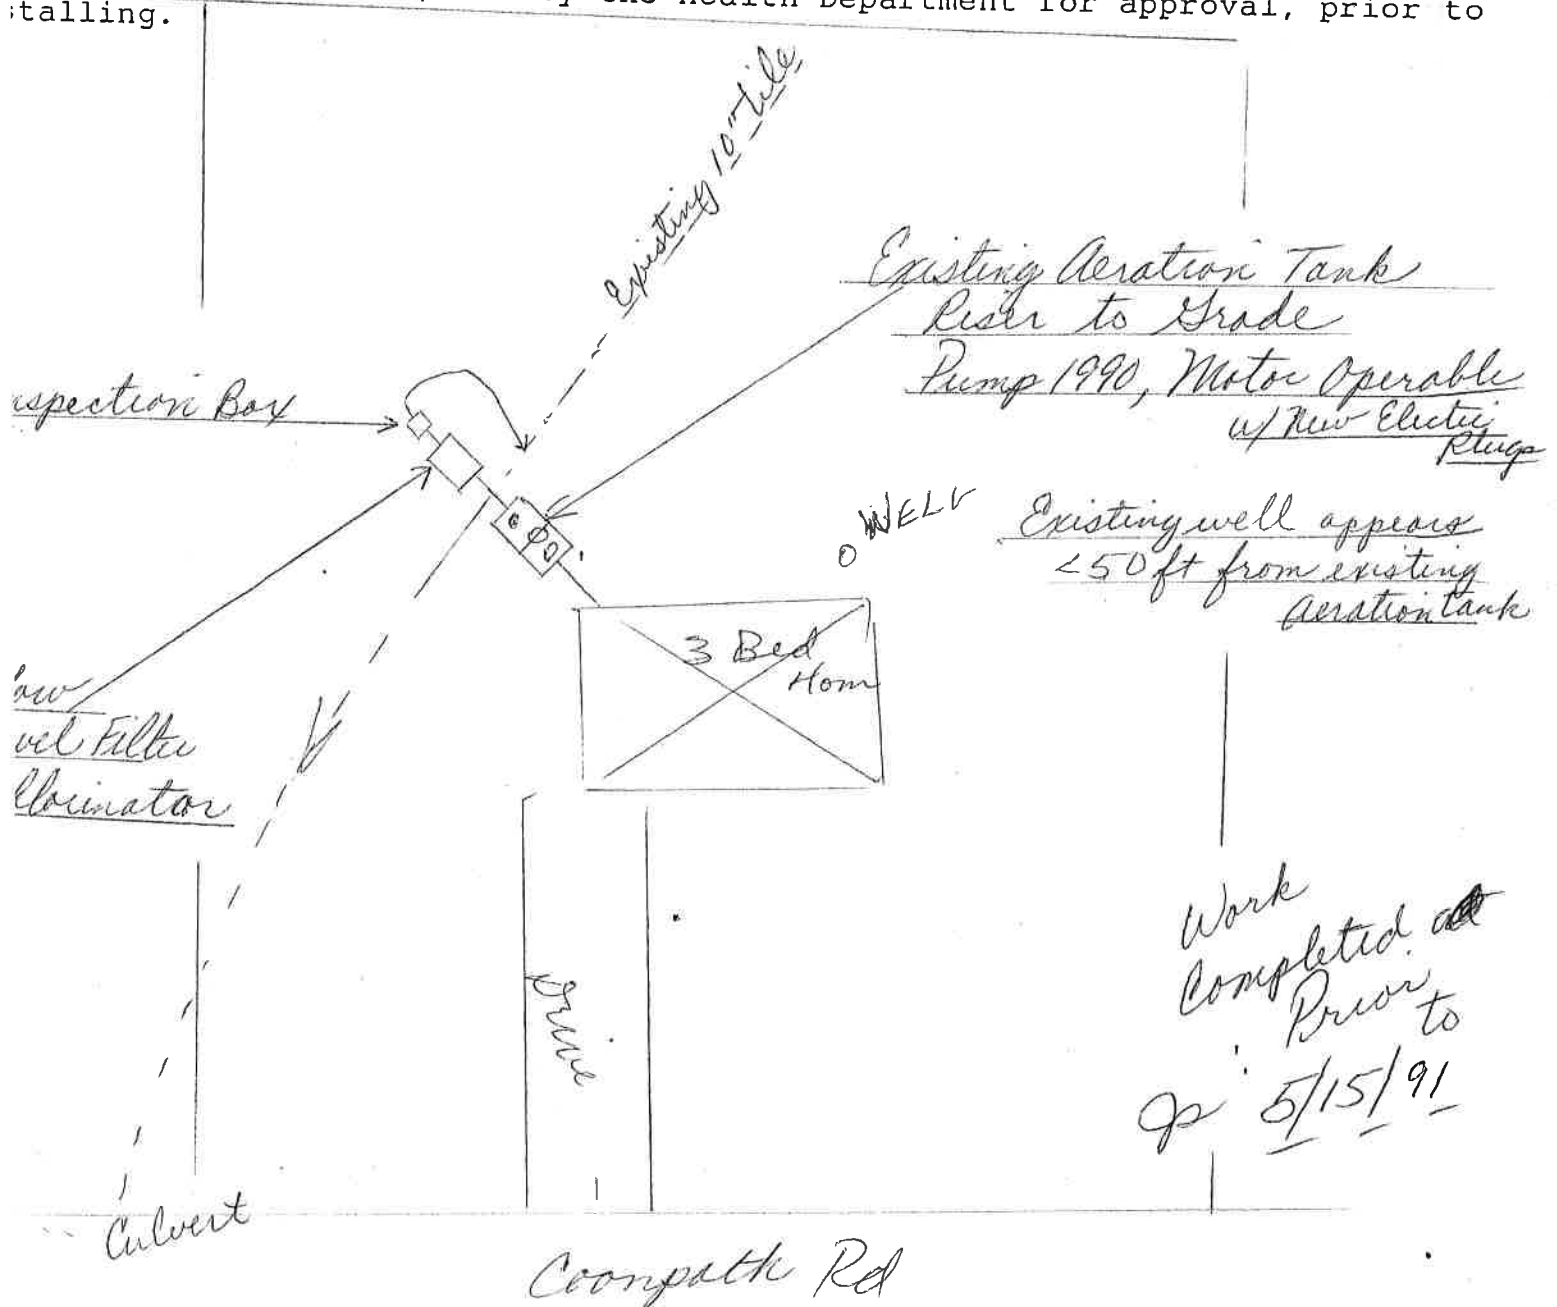 Health Department for approval, prior to
stalling.
Existing 10" tile
Existing Aeration Tank
Riser to Grade
Pump 1990, Motor Operable
w/ New Electric
Plugs
nspection Box
WELL
Existing well appears
<50 ft from existing
aeration tank
3 Bed
Hom
vel Filter
lorinator
Work
Completed
Prior
to
5/15/91
Drive
Culvert
Coonpath Rd